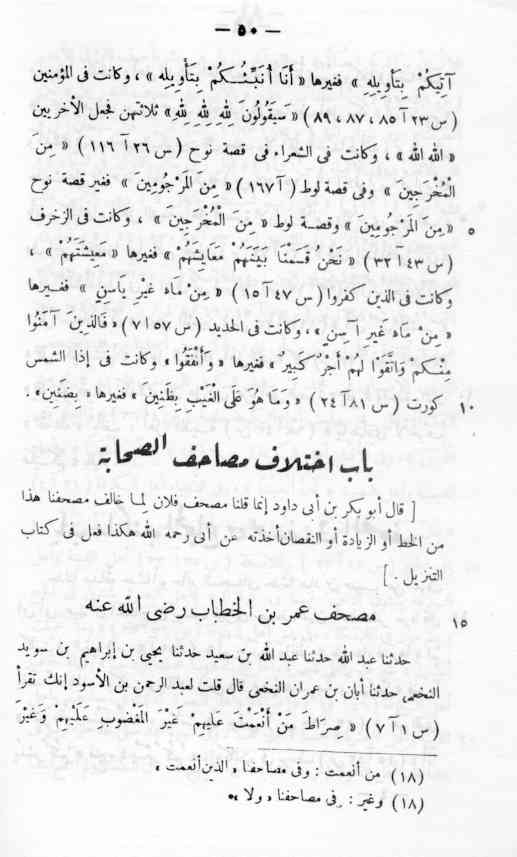 — ٥٠ —
آتِيكُمْ بِتَأْوِيلِهِ » فغيرها « أَنَا أُنَبِّئُكُمْ بِتَأْوِيلِهِ » ، وكانت فى المؤمنين
(س ٢٣ آ ٨٥ ، ٨٧ ، ٨٩) « سَيَقُولُونَ لِلهِ لِلهِ لِلهِ » ثلاثتهن فجعل الأخريين
« الله الله » ، وكانت فى الشعراء فى قصة نوح (س ٢٦ آ ١١٦) « مِنَ
الْمُخْرَجِينَ » وفى قصة لوط (آ ١٦٧) « مِنَ الْمَرْجُومِينَ » فغير قصة نوح
٥ « مِنَ المَرْجُومِينَ » وقصة لوط « مِنَ الْمُخْرَجِينَ » ، وكانت فى الزخرف
(س ٤٣ آ ٣٢) « نَحْنُ قَسَمْنَا بَيْنَهُمْ مَعَايِشَهُمْ » فغيرها « مَعِيشَتَهُمْ » ،
وكانت فى الذين كفروا (س ٤٧ آ ١٥) « مِنْ مَاءٍ غَيْرِ يَاسِنٍ » فغيرها
« مِنْ مَاءٍ غَيرِ آسِنٍ » ، وكانت فى الحديد (س ٥٧ آ ٧) « فَالَّذِينَ آمَنُوا
مِنْكُمْ وَاتَّقَوْا لَهُمْ أَجْرٌ كَبِيرٌ » فغيرها « وَأَنْفَقُوا » وكانت فى إذا الشمس
١٠ كورت (س ٨١ آ ٢٤) « وَمَا هُوَ عَلَى الْغَيْبِ بِظَنِينٍ » فغيرها « بِضَنِينٍ » .
باب اختلاف مصاحف الصحابة
[ قال أبو بكر بن أبى داود إنما قلنا مصحف فلان لِمَا خالف مصحفنا هذا
من الخط أو الزيادة أو النقصان أخذته عن أبى رحمه الله هكذا فعل فى كتاب
التنزيل . ]
١٥ مصحف عمر بن الخطاب رضى الله عنه
حدثنا عبد الله حدثنا عبد الله بن سعيد حدثنا يحيى بن إبراهيم بن سويد
النخعى حدثنا أبان بن عمران النخعى قال قلت لعبد الرحمن بن الأسود إنك تقرأ
(س ١ آ ٧) « صِرَاطَ مَنْ أَنْعَمْتَ عَلَيهِمْ غَيْرَ المَغْضُوبِ عَلَيْهِمْ وَغَيْرَ
(١٨) من أنعمت : وفى مصاحفنا « الذين أنعمت »
(١٨) وغير : فى مصاحفنا « ولا » .